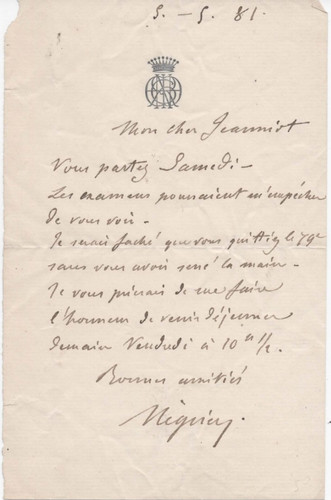 5. - 5. 81.
Mon cher Jeanniot
Vous partez Samedi -
Les examens pourraient m'empêcher
de vous voir -
Je serais faché que vous quittiez le 79e
sans vous avoir serré la main -
Je vous prierais de me faire
l'honneur de venir déjeuner
demain Vendredi à 10h 1/2.
Bonnes amitiés